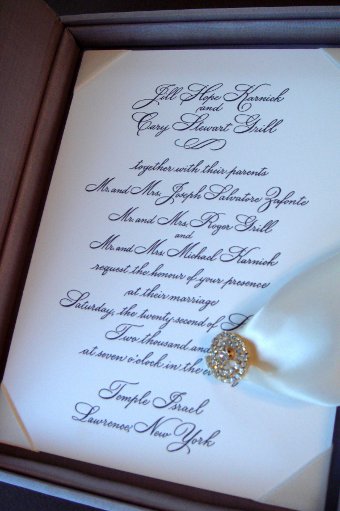 Jill Hope Karnick
and
Cary Stewart Grill
together with their parents
Mr. and Mrs. Joseph Salvatore Zafonte
Mr. and Mrs. Roger Grill
and
Mr. and Mrs. Michael Karnick
request the honour of your presence
at their marriage
Saturday, the twenty second of
Two thousand and
at seven o'clock in the
Temple Israel
Lawrence, New York